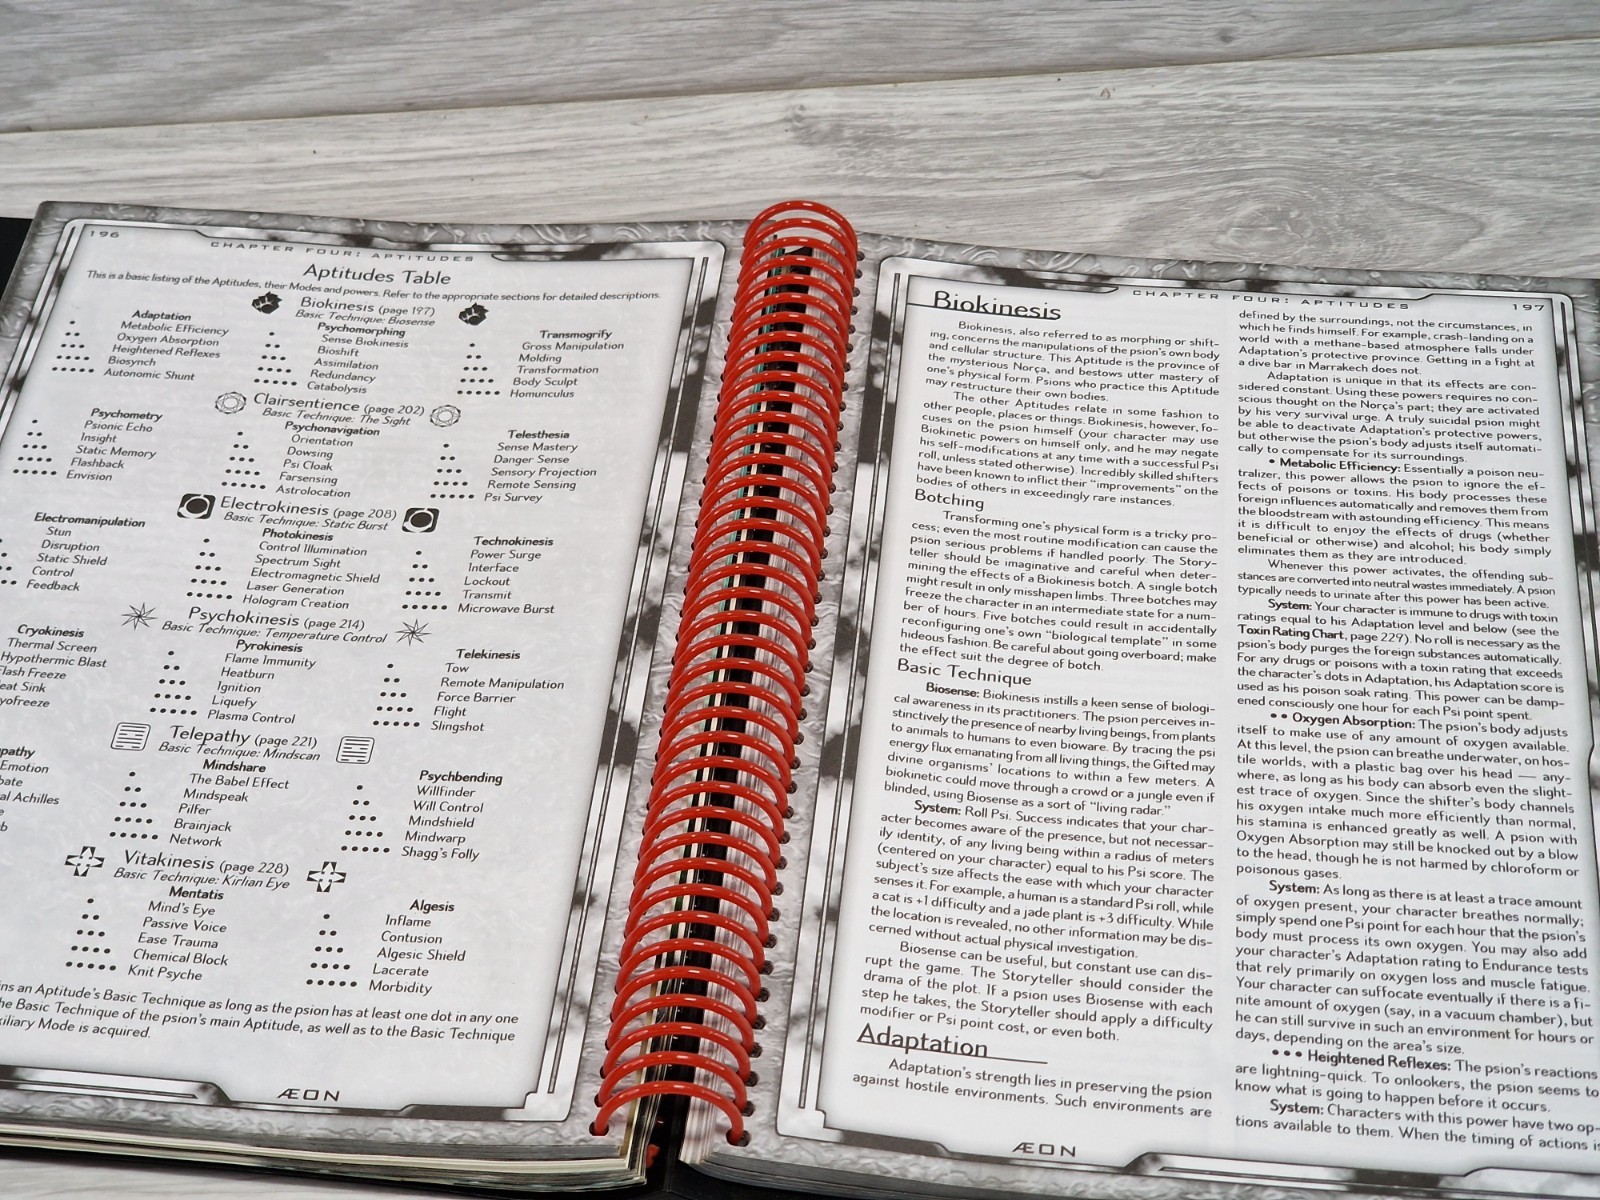 196
CHAPTER FOUR: APTITUDES
Aptitudes Table
This is a basic listing of the Aptitudes, their Modes and powers. Refer to the appropriate sections for detailed descriptions.
Biokinesis (page 197)
Basic Technique: Biosense
Adaptation
• Metabolic Efficiency
•• Oxygen Absorption
••• Heightened Reflexes
•••• Biosynch
••••• Autonomic Shunt
Psychomorphing
• Sense Biokinesis
•• Bioshift
••• Assimilation
•••• Redundancy
••••• Catabolysis
Transmogrify
• Gross Manipulation
•• Molding
••• Transformation
•••• Body Sculpt
••••• Homunculus
Clairsentience (page 202)
Basic Technique: The Sight
Psychometry
• Psionic Echo
•• Insight
••• Static Memory
•••• Flashback
••••• Envision
Psychonavigation
• Orientation
•• Dowsing
••• Psi Cloak
•••• Farsensing
••••• Astrolocation
Telesthesia
• Sense Mastery
•• Danger Sense
••• Sensory Projection
•••• Remote Sensing
••••• Psi Survey
Electrokinesis (page 208)
Basic Technique: Static Burst
Electromanipulation
Stun
Disruption
Static Shield
Control
Feedback
Photokinesis
• Control Illumination
•• Spectrum Sight
••• Electromagnetic Shield
•••• Laser Generation
••••• Hologram Creation
Technokinesis
• Power Surge
•• Interface
••• Lockout
•••• Transmit
••••• Microwave Burst
Psychokinesis (page 214)
Basic Technique: Temperature Control
Cryokinesis
Thermal Screen
Hypothermic Blast
Flash Freeze
eat Sink
yofreeze
Pyrokinesis
• Flame Immunity
•• Heatburn
••• Ignition
•••• Liquefy
••••• Plasma Control
Telekinesis
• Tow
•• Remote Manipulation
••• Force Barrier
•••• Flight
••••• Slingshot
Telepathy (page 221)
Basic Technique: Mindscan
pathy
Emotion
bate
al Achilles
e
b
Mindshare
• The Babel Effect
•• Mindspeak
••• Pilfer
•••• Brainjack
••••• Network
Psychbending
• Willfinder
•• Will Control
••• Mindshield
•••• Mindwarp
••••• Shagg's Folly
Vitakinesis (page 228)
Basic Technique: Kirlian Eye
Mentatis
• Mind's Eye
•• Passive Voice
••• Ease Trauma
•••• Chemical Block
••••• Knit Psyche
Algesis
• Inflame
•• Contusion
••• Algesic Shield
•••• Lacerate
••••• Morbidity
ns an Aptitude's Basic Technique as long as the psion has at least one dot in any one
he Basic Technique of the psion's main Aptitude, as well as to the Basic Technique
xiliary Mode is acquired.
ÆON
CHAPTER FOUR: APTITUDES
197
Biokinesis
Biokinesis, also referred to as morphing or shift-
ing, concerns the manipulations of the psion's own body
and cellular structure. This Aptitude is the province of
the mysterious Norça, and bestows utter mastery of
one's physical form. Psions who practice this Aptitude
may restructure their own bodies.
The other Aptitudes relate in some fashion to
other people, places or things. Biokinesis, however, fo-
cuses on the psion himself (your character may use
Biokinetic powers on himself only, and he may negate
his self-modifications at any time with a successful Psi
roll, unless stated otherwise). Incredibly skilled shifters
have been known to inflict their "improvements" on the
bodies of others in exceedingly rare instances.
Botching
Transforming one's physical form is a tricky pro-
cess; even the most routine modification can cause the
psion serious problems if handled poorly. The Story-
teller should be imaginative and careful when deter-
mining the effects of a Biokinesis botch. A single botch
might result in only misshapen limbs. Three botches may
freeze the character in an intermediate state for a num-
ber of hours. Five botches could result in accidentally
reconfiguring one's own "biological template" in some
hideous fashion. Be careful about going overboard; make
the effect suit the degree of botch.
Basic Technique
Biosense: Biokinesis instills a keen sense of biologi-
cal awareness in its practitioners. The psion perceives in-
stinctively the presence of nearby living beings, from plants
to animals to humans to even bioware. By tracing the psi
energy flux emanating from all living things, the Gifted may
divine organisms' locations to within a few meters. A
biokinetic could move through a crowd or a jungle even if
blinded, using Biosense as a sort of "living radar."
System: Roll Psi. Success indicates that your char-
acter becomes aware of the presence, but not necessar-
ily identity, of any living being within a radius of meters
(centered on your character) equal to his Psi score. The
subject's size affects the ease with which your character
senses it. For example, a human is a standard Psi roll, while
a cat is +1 difficulty and a jade plant is +3 difficulty. While
the location is revealed, no other information may be dis-
cerned without actual physical investigation.
Biosense can be useful, but constant use can dis-
rupt the game. The Storyteller should consider the
drama of the plot. If a psion uses Biosense with each
step he takes, the Storyteller should apply a difficulty
modifier or Psi point cost, or even both.
Adaptation
Adaptation's strength lies in preserving the psion
against hostile environments. Such environments are
defined by the surroundings, not the circumstances, in
which he finds himself. For example, crash-landing on a
world with a methane-based atmosphere falls under
Adaptation's protective province. Getting in a fight at
a dive bar in Marrakech does not.
Adaptation is unique in that its effects are con-
sidered constant. Using these powers requires no con-
scious thought on the Norça's part; they are activated
by his very survival urge. A truly suicidal psion might
be able to deactivate Adaptation's protective powers,
but otherwise the psion's body adjusts itself automati-
cally to compensate for its surroundings.
• Metabolic Efficiency: Essentially a poison neu-
tralizer, this power allows the psion to ignore the ef-
fects of poisons or toxins. His body processes these
foreign influences automatically and removes them from
the bloodstream with astounding efficiency. This means
it is difficult to enjoy the effects of drugs (whether
beneficial or otherwise) and alcohol; his body simply
eliminates them as they are introduced.
Whenever this power activates, the offending sub-
stances are converted into neutral wastes immediately. A psion
typically needs to urinate after this power has been active.
System: Your character is immune to drugs with toxin
ratings equal to his Adaptation level and below (see the
Toxin Rating Chart, page 229). No roll is necessary as the
psion's body purges the foreign substances automatically.
For any drugs or poisons with a toxin rating that exceeds
the character's dots in Adaptation, his Adaptation score is
used as his poison soak rating. This power can be damp-
ened consciously one hour for each Psi point spent.
•• Oxygen Absorption: The psion's body adjusts
itself to make use of any amount of oxygen available.
At this level, the psion can breathe underwater, on hos-
tile worlds, with a plastic bag over his head — any-
where, as long as his body can absorb even the slight-
est trace of oxygen. Since the shifter's body channels
his oxygen intake much more efficiently than normal,
his stamina is enhanced greatly as well. A psion with
Oxygen Absorption may still be knocked out by a blow
to the head, though he is not harmed by chloroform or
poisonous gases.
System: As long as there is at least a trace amount
of oxygen present, your character breathes normally;
simply spend one Psi point for each hour that the psion's
body must process its own oxygen. You may also add
your character's Adaptation rating to Endurance tests
that rely primarily on oxygen loss and muscle fatigue.
Your character can suffocate eventually if there is a fi-
nite amount of oxygen (say, in a vacuum chamber), but
he can still survive in such an environment for hours or
days, depending on the area's size.
••• Heightened Reflexes: The psion's reactions
are lightning-quick. To onlookers, the psion seems to
know what is going to happen before it occurs.
System: Characters with this power have two op-
tions available to them. When the timing of actions is
ÆON